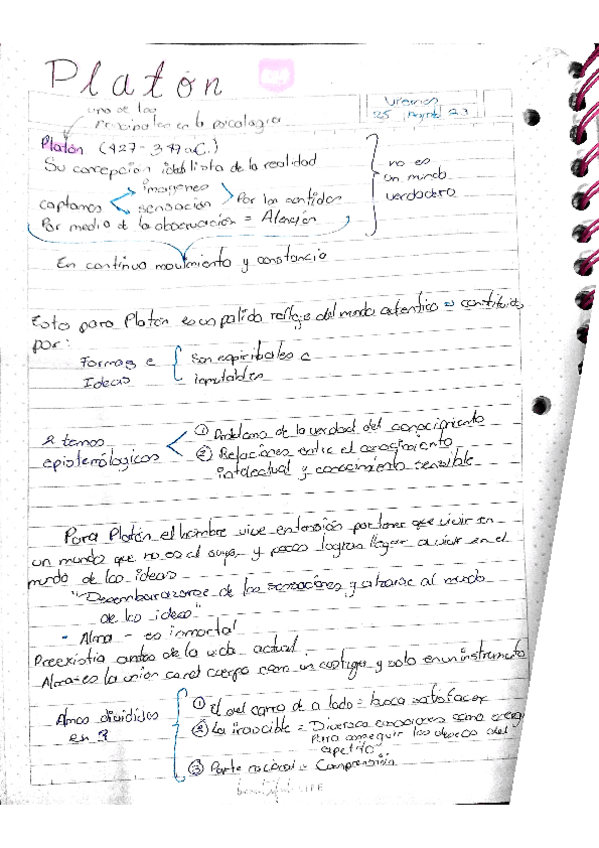 Platón
uno de los
Principales en la psicología
Viernes
25 23
Platón (427-347 a.C.)
Su concepción idealista de la realidad
captamos
imagenes
sensación
Por los sentidos
Por medio de la observación = Atención
no es
un mundo
verdadero
En continuo movimiento y constancia
Esto para Platón es un palido reflejo del mundo autentico = constituido
por:
Formas e
Ideas
Son espirituales e
inmutables
2 temas
epistemólogicos
① Problema de la verdad del conocimiento
② Relaciones entre el conocimiento
intelectual y conocimiento sensible
Para Platón el hombre vive en tensión por tener que vivir en
un mundo que no es el suyo y pocos logran llegar a vivir en el
mundo de las ideas
"Desembarazarse de las sensaciones y alzarse al mundo
de las ideas"
- Alma - es inmortal
Preexistia antes de la vida actual
Alma es la union con el cuerpo como un castigo y solo en un instrumento
Almas divididas
en 3
① El del carro de a lado = busca satisfacer
② La irascible = Diversas emociones como
Para conseguir los deseos del
apetito
③ Parte racional = Comprensión
LIFE